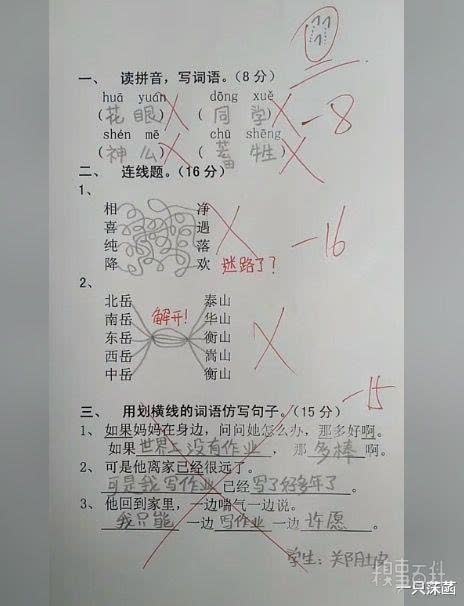 一、 读拼音，写词语。（8分）
huā yuán dōng xuě
（花 眼） （同 学） -8
shén mē chū shēng
（神 么） （畜 牲）
二、 连线题。（16分）
1、
相 净
喜 遇
纯 落 -16
降 欢 迷路了？
2、
北岳 泰山
南岳 华山
东岳 解开！ 衡山
西岳 嵩山
中岳 衡山
-15
三、 用划横线的词语仿写句子。（15分）
1、如果妈妈在身边，问问她怎么办，那多好啊。
如果世界上没有作业，那多棒啊。
2、可是他离家已经很远了。
可是我写作业已经写了好多年了。
3、他回到家里，一边喘气一边说。
我只能一边写作业一边许愿。
学生：郑
糗事百科
一只沫菡